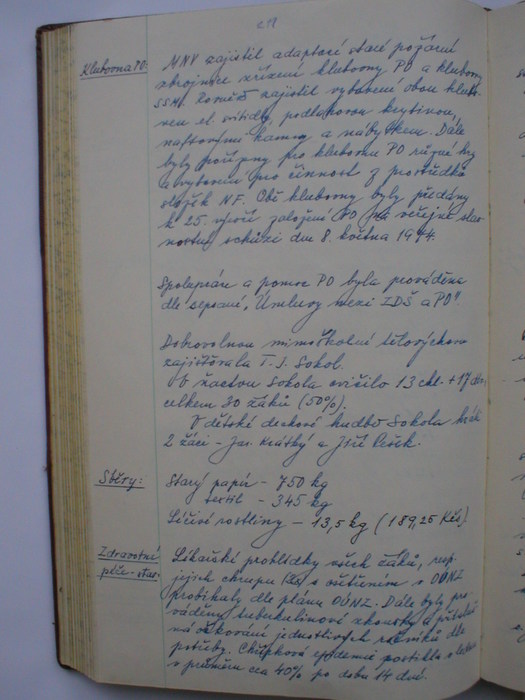 219
Klubovna PO: MNV zajistil adaptaci staré požární
zbrojnice zřízení klubovny PO a klubovny
SSM. Rovněž zajistil vybavení obou klubo-
ven el. svítidly, podlahovou krytinou,
naftovými kamny a nábytkem. Dále
byly pro klubovnu PO různé hry
a vybavení pro činnost z prostředků
složek NF. Obě klubovny byly předány
k 25. výročí založení PO na veřejné slav-
nostní schůzi dne 8. května 1974.
Spolupráce a pomoc PO byla prováděna
dle sepsané „Úmluvy mezi ZDŠ a PO".
Dobrovolnou mimoškolní tělovýchovu
zajišťovala T. J. Sokol.
V žactvu Sokola cvičilo 13 chl. + 17 děv.
celkem 30 žáků (50%).
V dětské dechové hudbě Sokola hráli
2 žáci - Jar. Krátký a Jiří Pešek.
Sběry: Starý papír - 750 kg
textil - 345 kg
Léčivé rostliny - 13,5 kg (189,25 Kčs)
Zdravotní Lékařské prohlídky všech žáků, resp.
péče - stav. jejich chrupu s ošetřením v OÚNZ
probíhaly dle plánu OÚNZ. Dále byly pro-
váděny tuberkulinové zkoušky a přísluš-
ná očkování jednotlivých ročníků dle
potřeby. Chřipková epidemie postihla
v průměru cca 40% po dobu 14 dní.